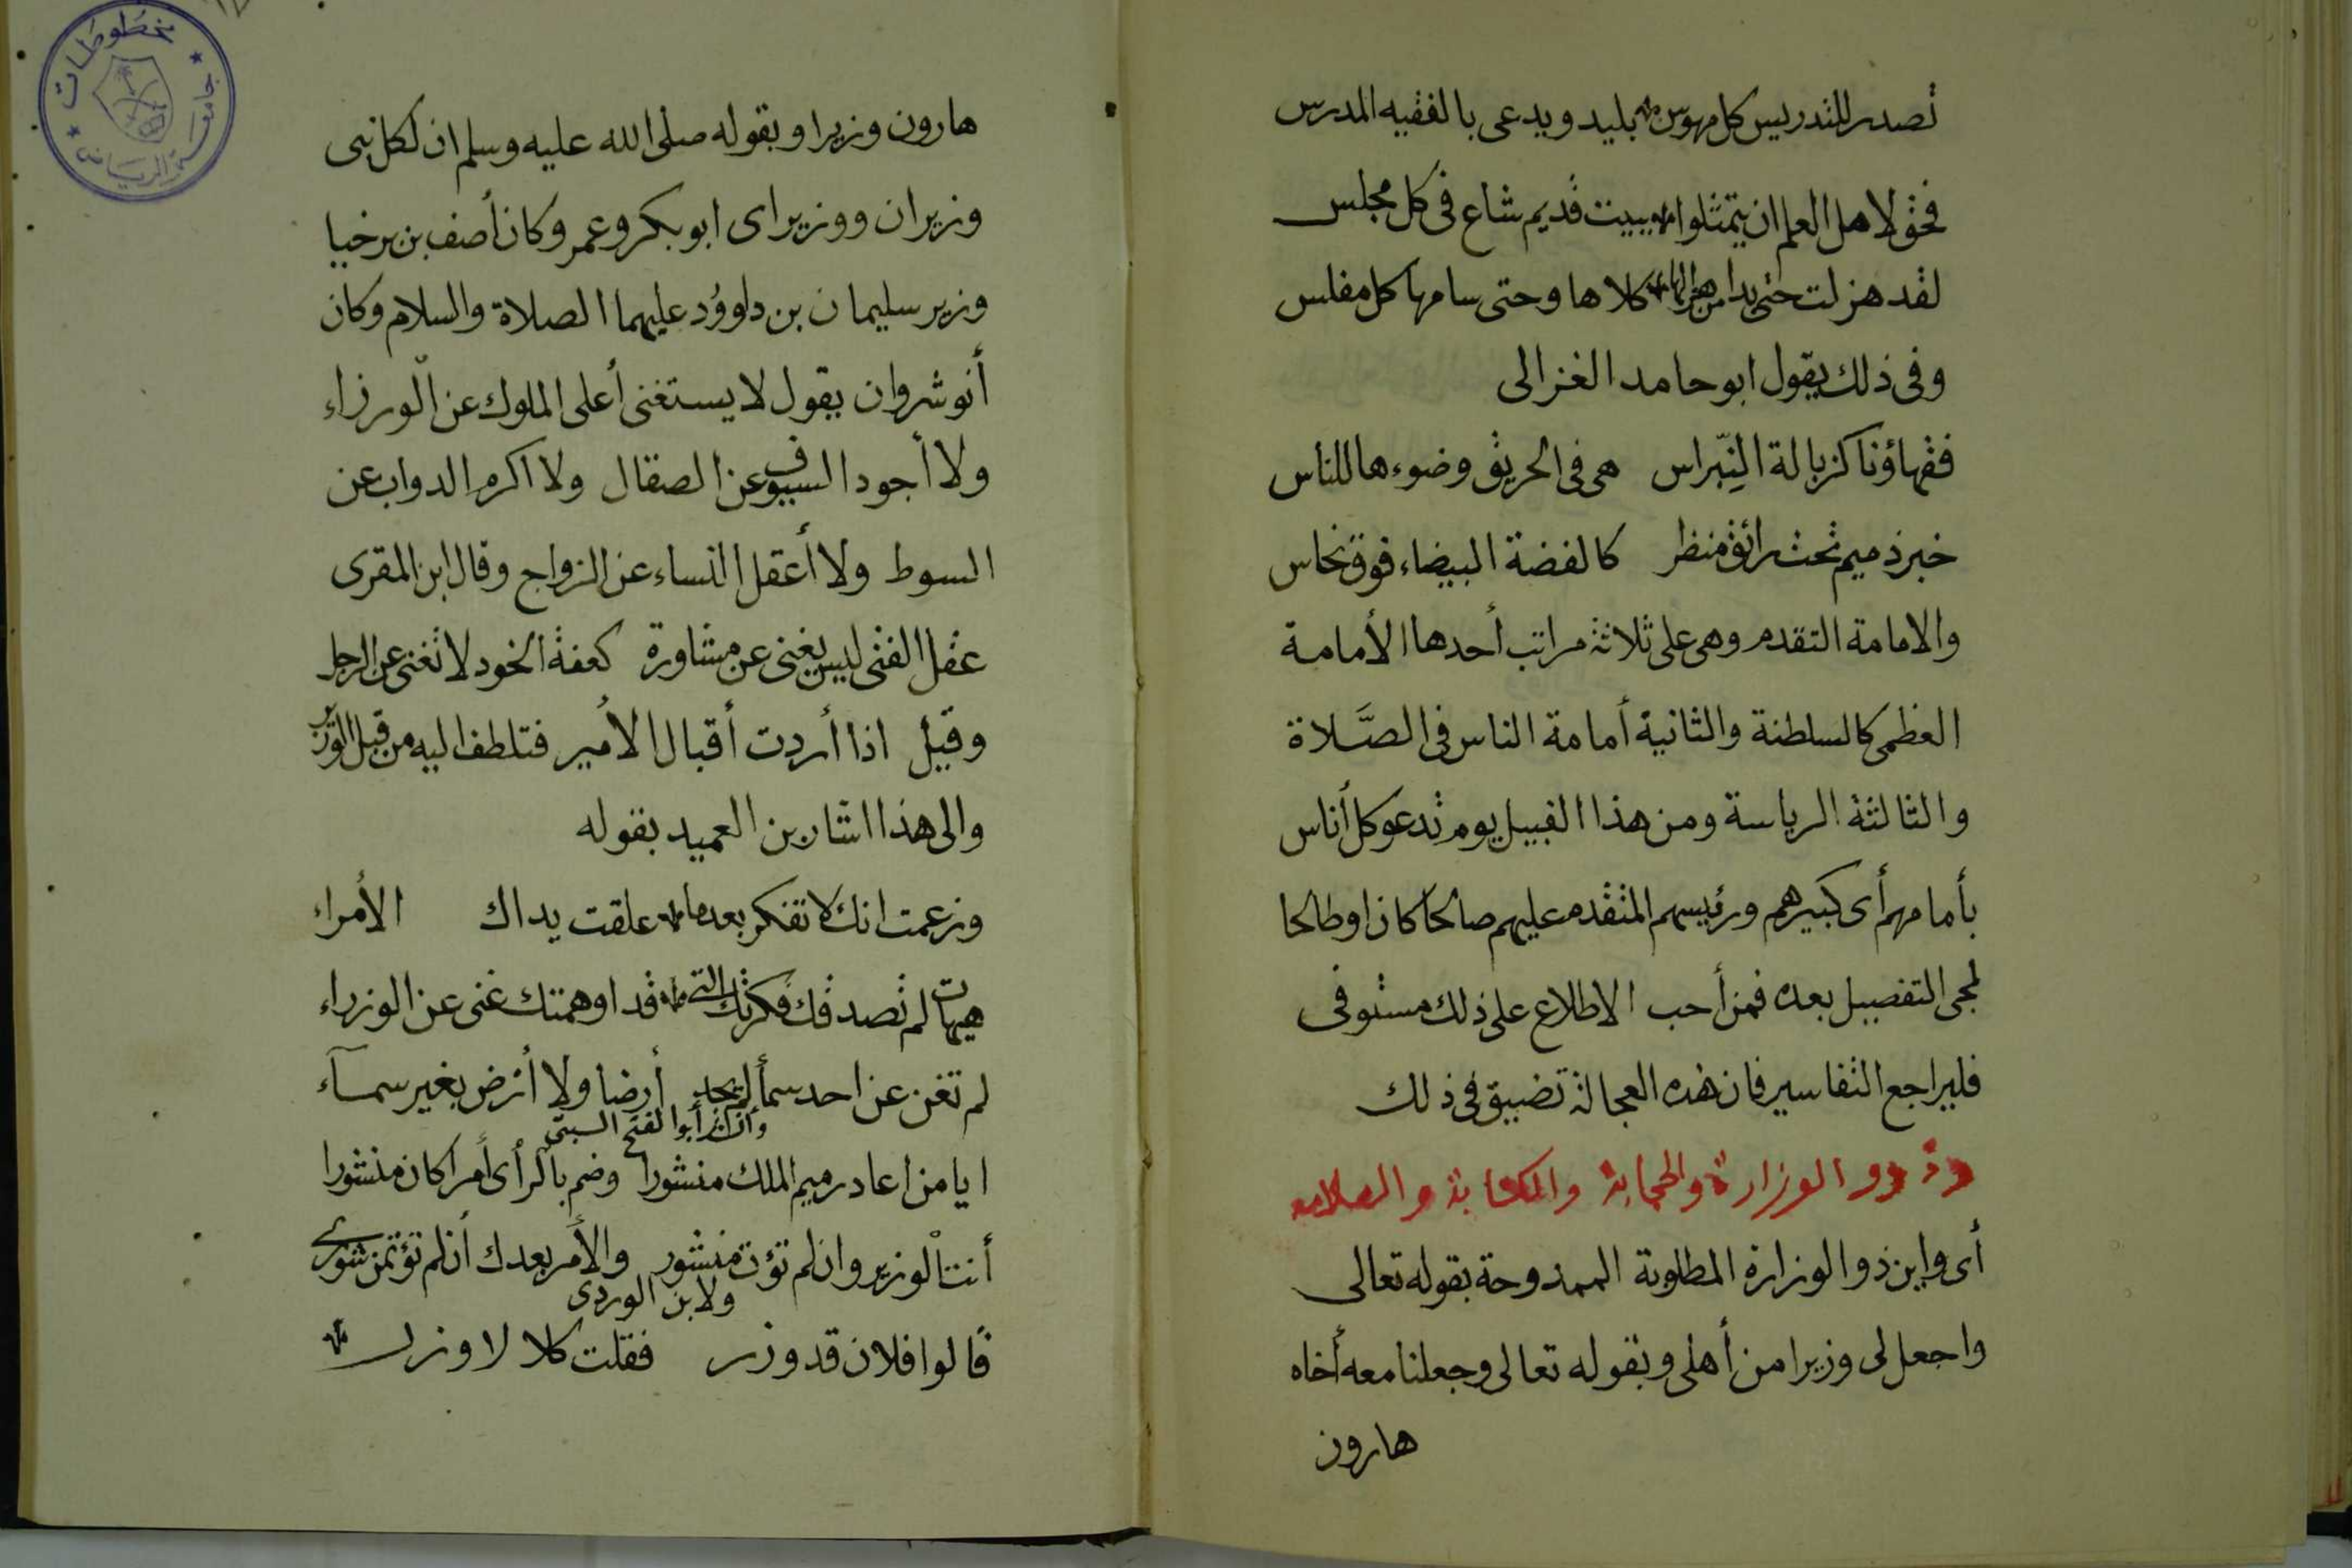 تصدر للتدريس كل مهوس بليد ويدعى بالفقيه المدرس
فحق لاهل العلم ان يتمثلوا ببيت قديم شاع فى كل مجلس
لقد هزلت حتى بدا من هزالها كلاها وحتى سامها كل مفلس
وفى ذلك يقول ابو حامد الغزالى
فقهاؤنا كزبالة النِّبراس هى فى الحريق وضوءها للناس
خبر ذميم تحت رائق منظر كالفضة البيضاء فوق نحاس
والامامة التقدم وهى على ثلاثة مراتب أحدها الأمامة
العظمى كالسلطنة والثانية أمامة الناس فى الصَّلاة
والثالثة الرياسة ومن هذا القبيل يوم ندعو كل أناس
بأمامهم أى كبيرهم ورئيسهم المتقدم عليهم صالحا كان اوطالحا
لمجى التفصيل بعده فمن أحب الاطلاع على ذلك مستوفى
فليراجع التفاسير فان هذه العجالة تضيق فى ذلك
وذوو الوزارة والحجابة والكتابة و
أى واين ذوو الوزارة المطلوبة الممدوحة بقوله تعالى
واجعل لى وزيرا من أهلى وبقوله تعالى وجعلنا معه أخاه
هارون
مخطوطات
جامعة الرياض
هارون وزيرا وبقوله صلى الله عليه وسلم ان لكل نبى
وزيران ووزيراى ابو بكر وعمر وكان أصف بن برخيا
وزير سليمان بن داوؤد عليهما الصلاة والسلام وكان
أنوشروان يقول لا يستغنى أعلى الملوك عن الورزاء
ولا أجود السيوف عن الصقال ولا اكرم الدواب عن
السوط ولا أعقل النساء عن الزواج وقال ابن المقرى
عقل الفتى ليس يغنى عن مشاورة كعفة الخود لا تغنى عن الرجل
وقيل اذا أردت أقبال الأمير فتلطف اليه من قبل الوزير
والى هذا اشار بن العميد بقوله
وزعمت انك لا تفكر بعدما علقت يداك الأمراء
هيهات لم تصدقك فكرتك التى قد اوهمتك غنى عن الوزراء
لم تغن عن احد سمأ لم تجد أرضا ولا أرض بغير سمآء
أبو الفتح البستى
ايا من اعاد رميم الملك منشورا وضم بالرأى أمرا كان منشورا
أنت الوزير وان لم تؤت منشور والأمر بعدك أن لم تؤتمن شورى
ولابن الوردى
قالوا فلان قد وزر فقلت كلا لا وزر